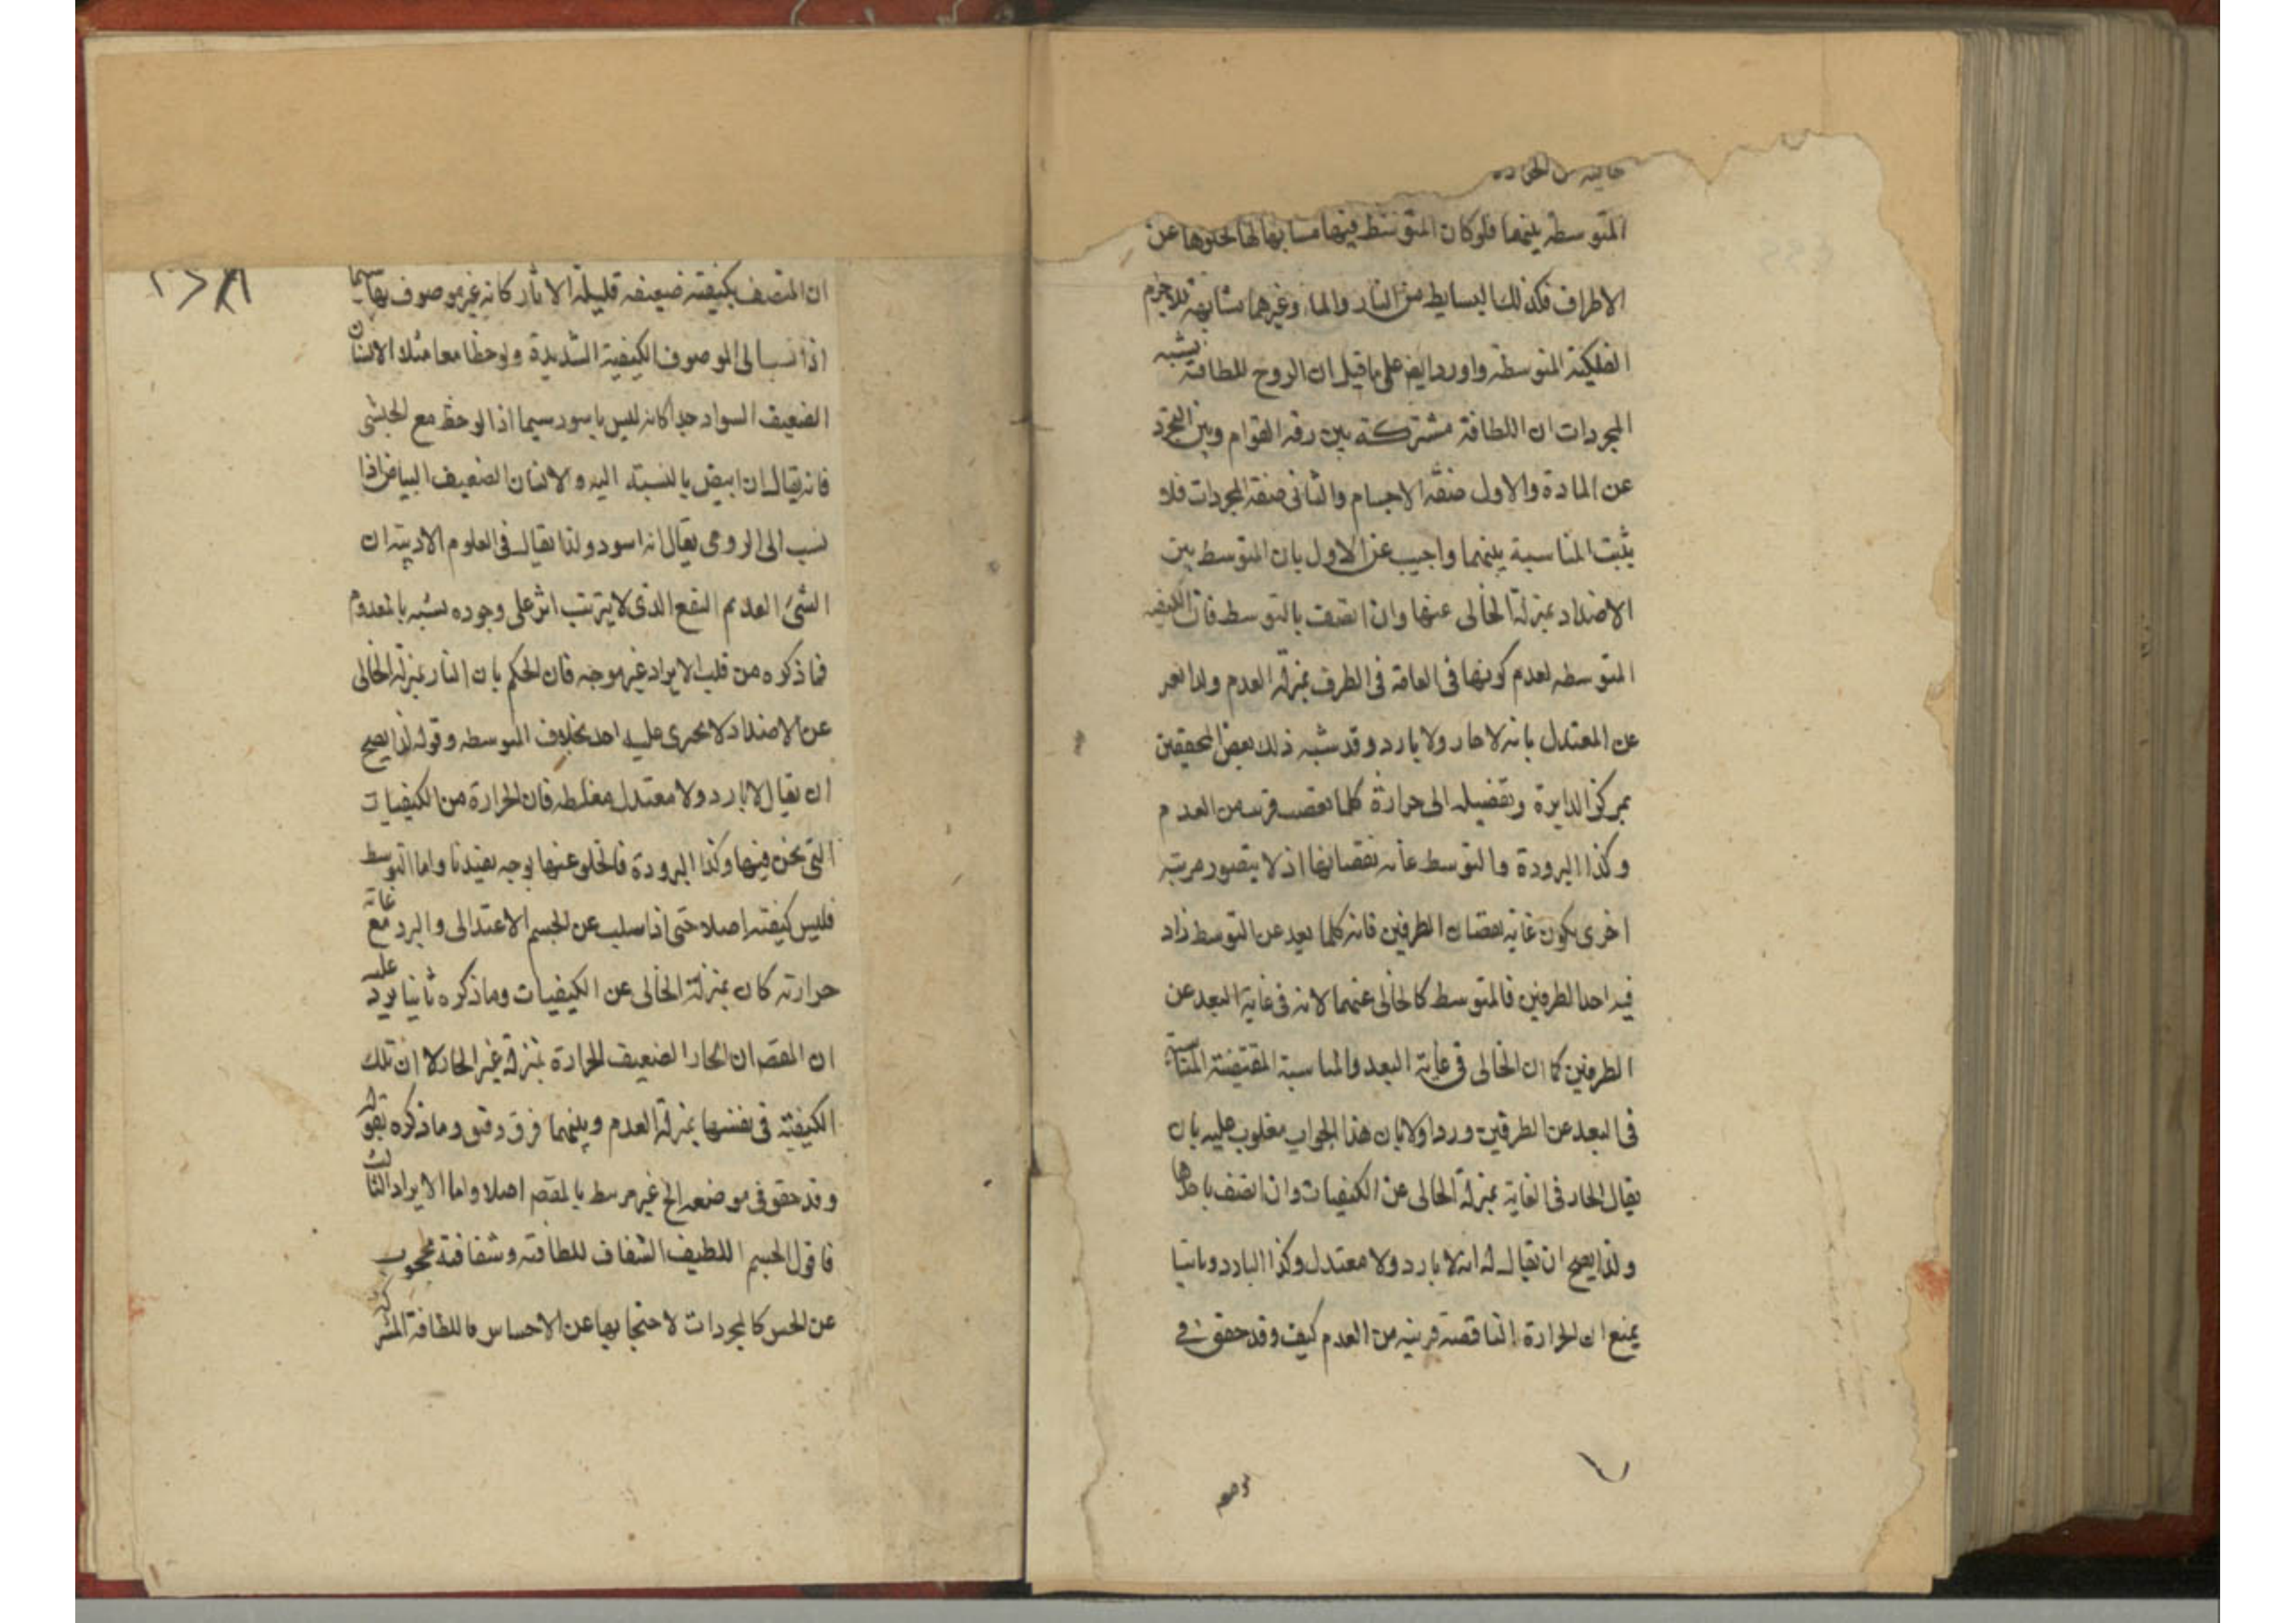 المتوسطة بينهما فلو كان المتوسط فيها مشابها لها لخلوها عن
الاطراف فكذلك البسايط من النار والماء وغيرهما مشابهة للاجرام
الفلكية المتوسطة واورد ايضا على ما قيل ان الروح للطافته يشبه
المجردات ان اللطافة مشتركة بين رقة القوام وبين التجرد
عن المادة والاول صفة الاجسام والثاني صفة المجردات فلا
يثبت المناسبة بينهما واجيب عن الاول بان المتوسط بين
الاضداد بمنزلة الخالى عنها وان اتصف بالتوسط فان الكيفية
المتوسطه لعدم كونها فى الغاية فى الطرف بمنزلة العدم ولذا يعبر
عن المعتدل بانه لا حار ولا بارد وقد شبه ذلك بعض المحققين
بمركز الدايرة وتفصيله الى حرارة كلما نقصت قربت من العدم
وكذا البرودة والتوسط غاية نقصانها اذ لا يتصور مرتبة
اخرى يكون غاية نقصان الطرفين فانه كلما بعد عن التوسط زاد
فيه احد الطرفين فالمتوسط كالخالى عنهما لانه فى غاية البعد عن
الطرفين كما ان الخالى فى غاية البعد والمناسبة المقتضية المناسبة
فى البعد عن الطرفين ورد اولا بان هذا الجواب مقلوب عليه بان
يقال الحار فى الغاية بمنزلة الخالى عن الكيفيات وان اتصف باحدها
ولذا يصح ان يقال له انه لا بارد ولا معتدل وكذا البارد وثانيا
يمنع ان الحرارة الناقصة قريبة من العدم كيف وقد حقق فى
ان المتصف بكيفية ضعيفة قليلة الاثار كانه غير موصوف بها سيما
اذا نسب الى الموصوف الكيفية الشديدة ولوحظا معا مثلا الانسان
الضعيف السواد جدا كانه ليس باسود سيما اذا لوحظ مع الحبشى
فانه يقال ان ابيض بالنسبة اليه والانسان الضعيف البياض اذا
نسب الى الرومى يقال انه اسود ولذا يقال فى العلوم الادبية ان
الشئ العديم النفع الذى لا يترتب اثر على وجوده يشبه بالمعدوم
فما ذكره من قلب الايراد غير موجه فان الحكم بان النار بمنزلة الخالى
عن الاضداد لا يجرى عليه احد بخلاف المتوسطه وقوله لذا يصح
ان يقال لا بارد ولا معتدل مغلطه فان الحرارة من الكيفيات
التى نحن فيها وكذا البرودة فالخلو عنها بوجه يفيدنا واما التوسط
فليس كيفية اصلا حتى اذا سلب عن الجسم الاعتدالى والبرد مع غاية
حرارته كان بمنزلة الخالى عن الكيفيات وما ذكره ثانيا يرد عليه
ان المقصد ان الحار الضعيف الحرارة بمنزلة غير الحار لا ان تلك
الكيفية فى نفسها بمنزلة العدم وبينهما فرق دقيق وما ذكره بقوله
وقد حقق فى موضعه الخ غير مرتبط بالمقصد اصلا واما الايراد الثالث
فاقول الجسم اللطيف الشفاف للطافته وشفافيته محجوب
عن الحس كالمجردات لاحتجابها عن الاحساس فاللطافة